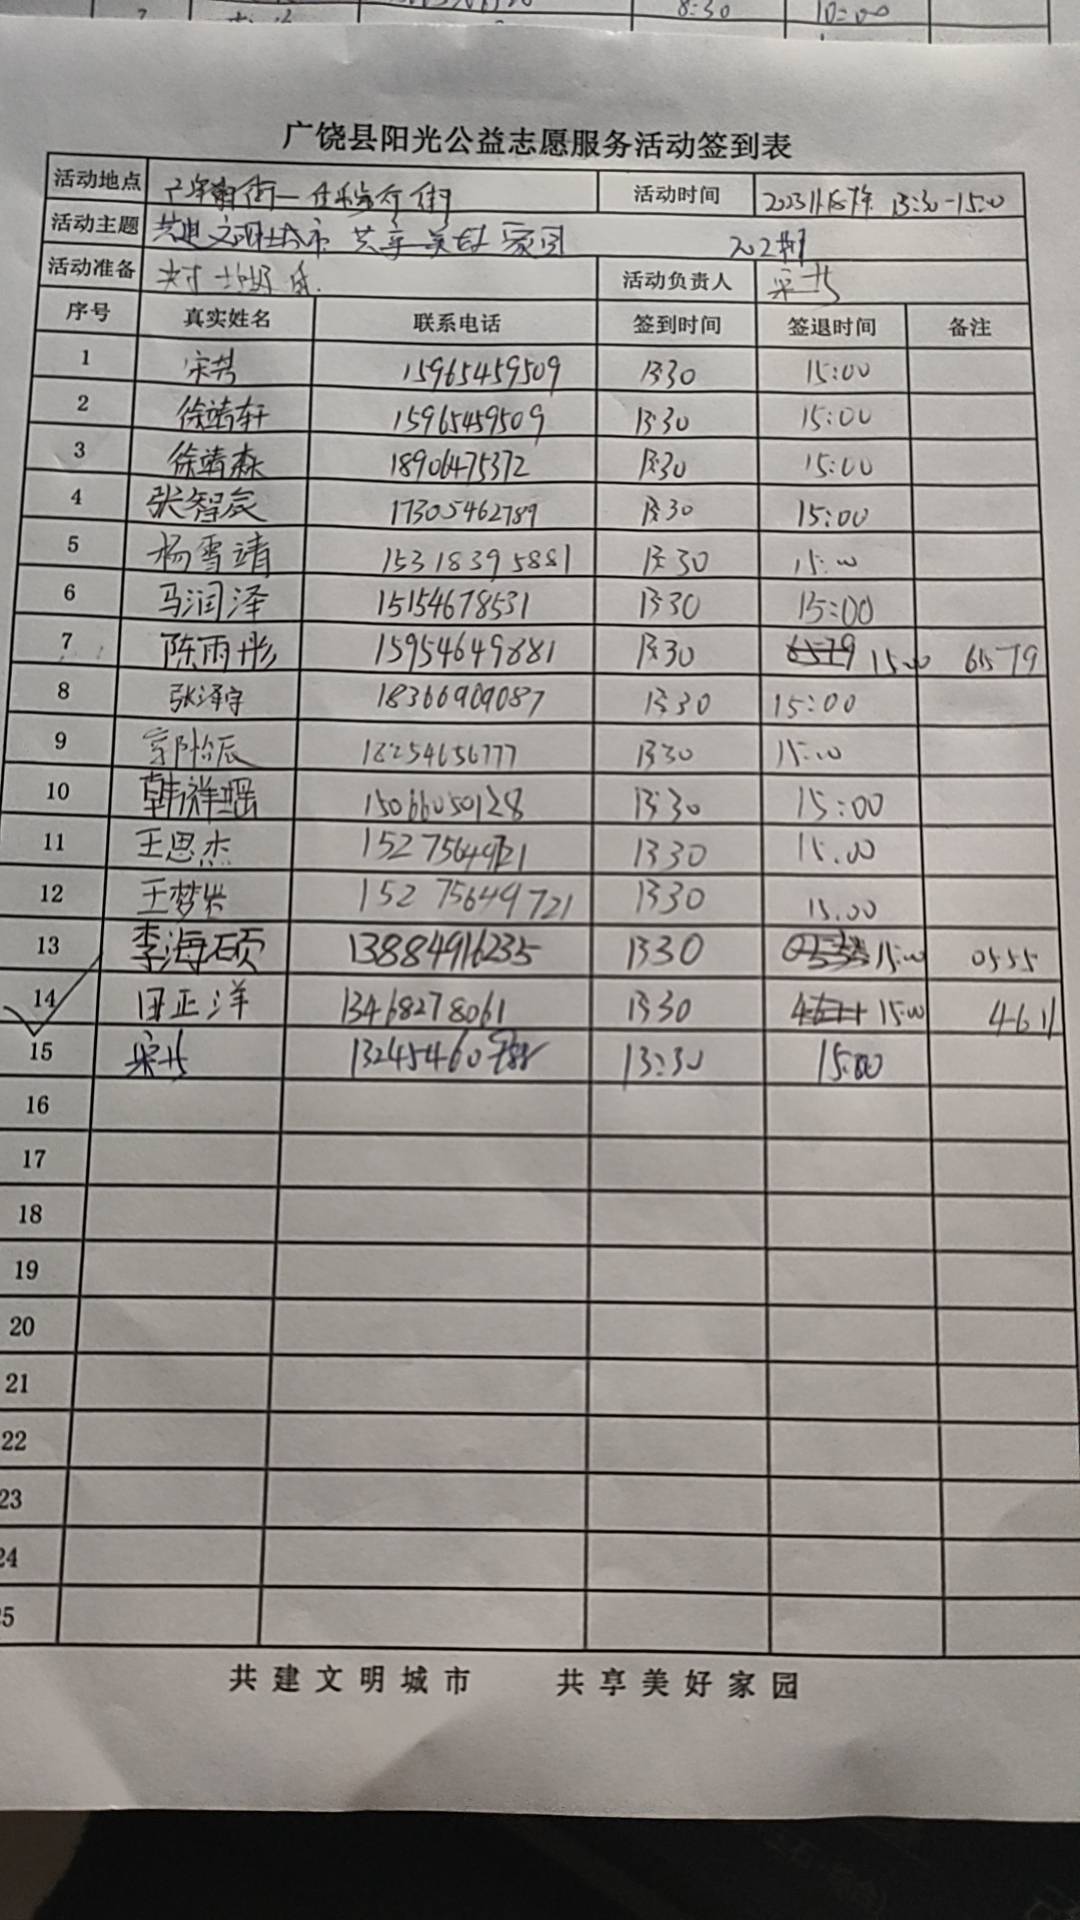 8:30 10:00
广饶县阳光公益志愿服务活动签到表
活动地点 活动时间 13:30-15:00
活动主题 共建文明城市 共享美好家园
活动准备 活动负责人
序号 真实姓名 联系电话 签到时间 签退时间 备注
1 宋芸 15965459509 13:30 15:00
2 徐靖轩 15965459509 13:30 15:00
3 徐靖森 18906475372 13:30 15:00
4 张智辰 17305462789 13:30 15:00
5 杨雪靖 15318395881 13:30 15:00
6 马润泽 15154678531 13:30 15:00
7 陈雨彤 15954649881 13:30 6579 15:00 6579
8 张泽宇 18366909087 13:30 15:00
9 18254656777 13:30 15:00
10 韩祥瑶 15066050128 13:30 15:00
11 王思杰 15275649721 13:30 15.00
12 王梦 15275649721 13:30 15.00
13 李海硕 13884916235 13:30 15:00 0555
14 田正洋 13468278061 13:30 15:00 4611
15 13:30 15:00
16
17
18
19
20
21
22
23
24
25
共建文明城市 共享美好家园